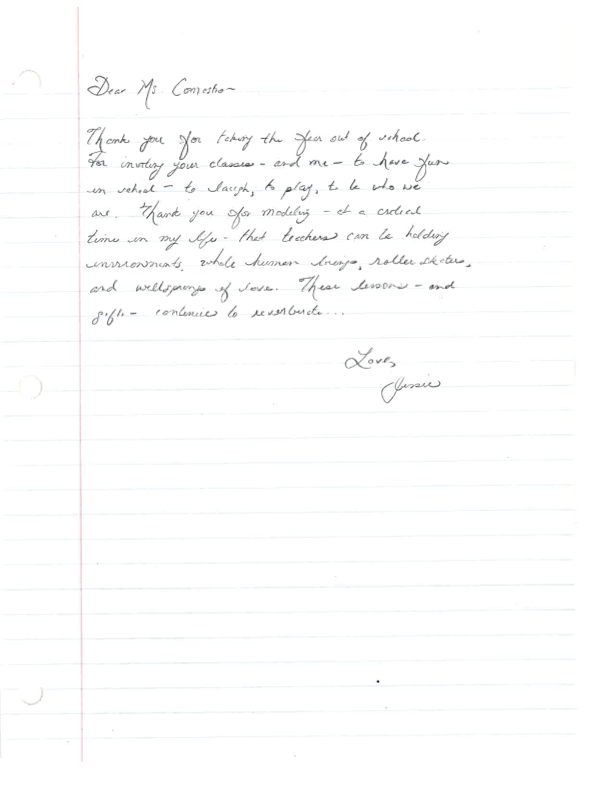 Dear Ms.
Thank you for taking the fear out of school.
For inviting your classes - and me - to have fun
in school - to laugh, to play, to be who we
are. Thank you for modeling - at a critical
time in my life - that teachers can be holding
environments, whole human beings, roller skaters,
and wellsprings of love. These lessons - and
gifts - continue to reverberate...
Love,
Jessie